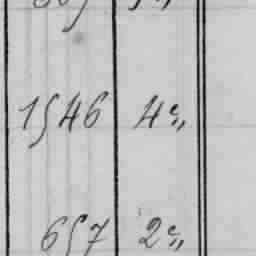 1546 4 с„
657 2 с„